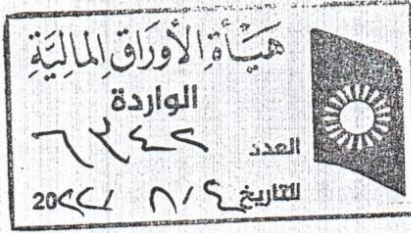 هَيْأَةِ الأَورَاقِ المَالِيَّةِ
الواردة
العدد ٦٣٤٢
التاريخ ٨/٤ /20٢٢